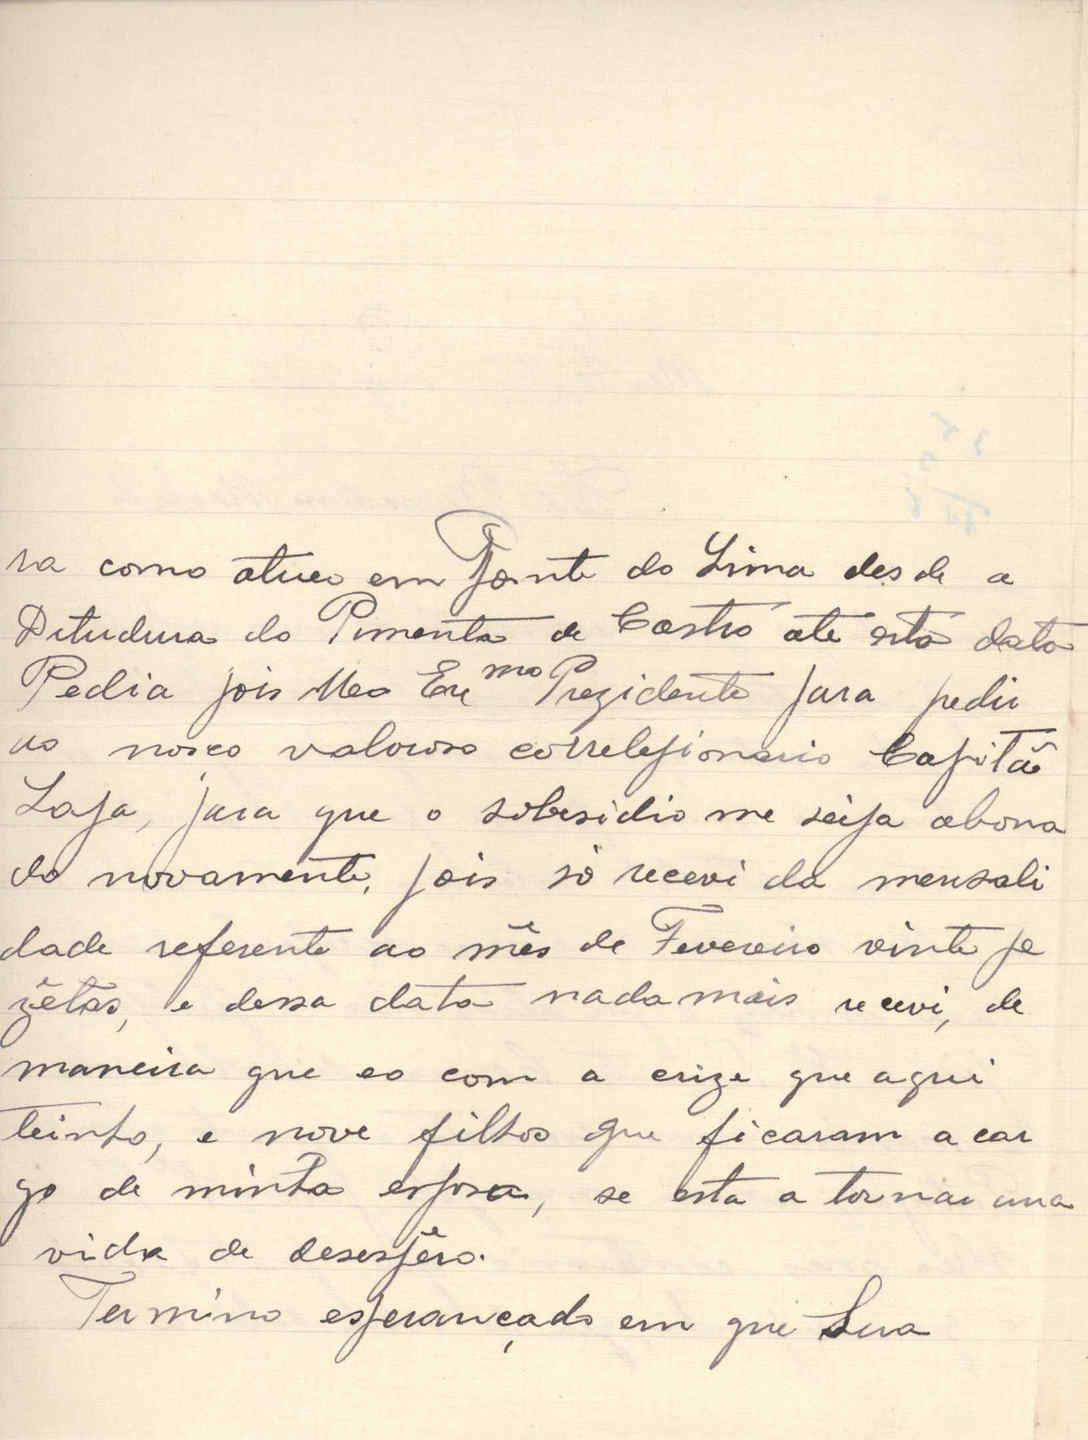 ra como atuco em Ponte do Lima desde a
Ditudura do Pimenta de Castro até esta data
Pedia pois Meo Exc.mo Prezidente para pedir
ao nosco valoroso correlegionario Capitão
Lapa, para que o sobesidio me seija abona
do novamente, pois só recevi da mensali
dade referente ao mês de Fevereiro vinte pe
zêtas, e dessa data nada mais recevi, de
maneira que eo com a crize que aqui
teinho, e nove filhos que ficaram a car
go de minha esposa, se esta a tornar uma
vida de desespêro.
Termino esperançado em que Sua